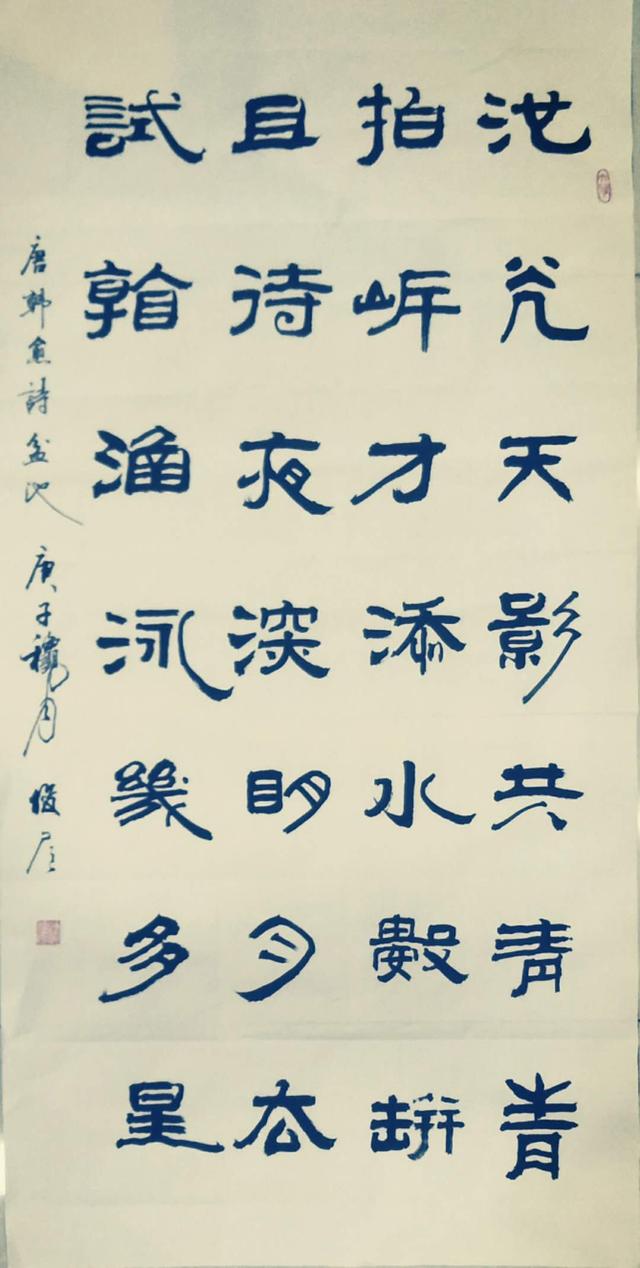 池光天影共青青
拍岸才添水數缾
且待夜深明月去
試看涵泳幾多星
唐韓愈詩盆池 庚子穐月 俊